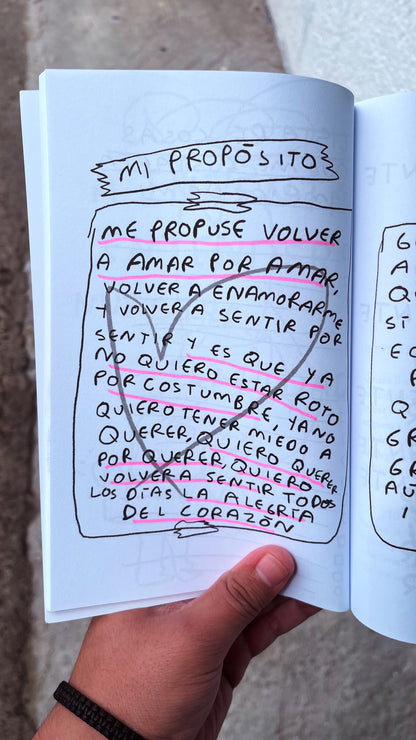 MI PROPÓSITO
ME PROPUSE VOLVER
A AMAR POR AMAR,
VOLVER A ENAMORARME
Y VOLVER A SENTIR POR
SENTIR Y ES QUE YA
NO QUIERO ESTAR ROTO
POR COSTUMBRE, YA NO
QUIERO TENER MIEDO A
QUERER, QUIERO QUERER
POR QUERER, QUIERO
VOLVER A SENTIR TODOS
LOS DÍAS LA ALEGRÍA
DEL CORAZÓN